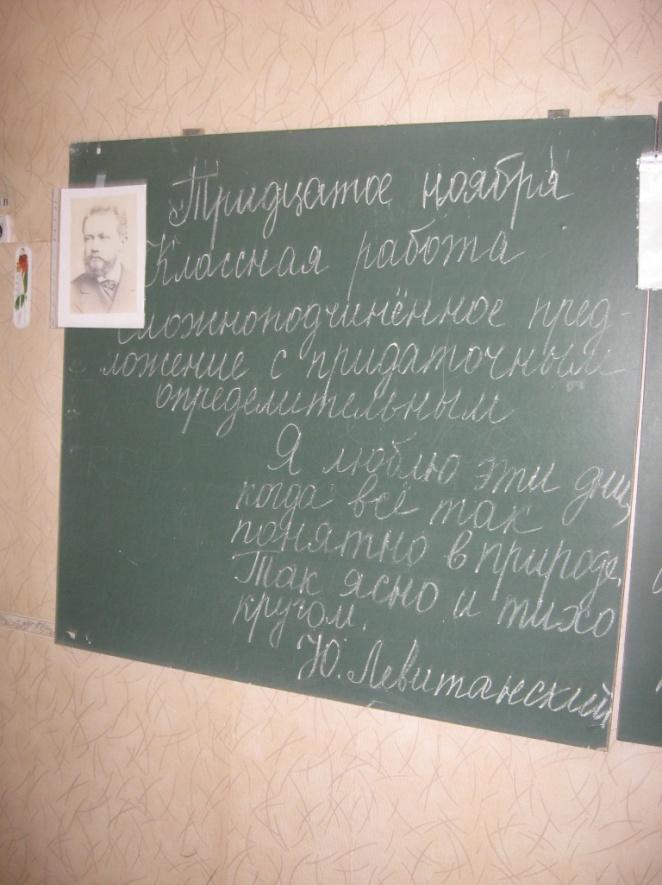 Тридцатое ноября
Классная работа
Сложноподчинённое пред-
ложение с придаточным
определительным
Я люблю эти дни,
когда всё так
понятно в природе,
Так ясно и тихо
кругом.
Ю. Левитанский